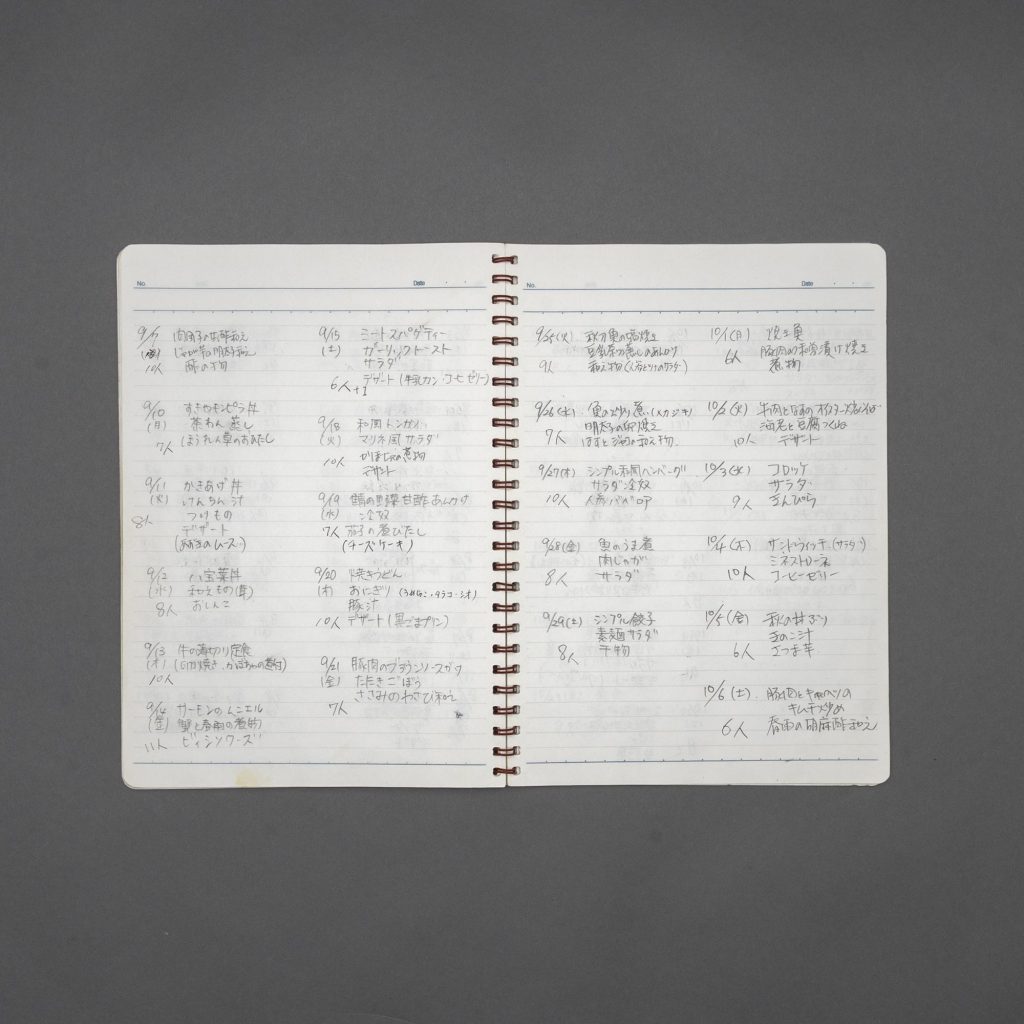 No.
Date
9/7 肉団子の甘酢和え
じゃが芋の明太和え
10人 酢の物
9/10
(月) 茶わん蒸し
7人 ほうれん草のおひたし
9/11 かきあげ丼
(火) けんちん汁
つけもの
8人 デザート
9/12 八宝菜丼
(水) 和えもの
8人 おしんこ
9/13 牛の薄切り定食
(木)
10人
9/14 サーモンのムニエル
(金) 蟹と春雨の煮物
11人 ビィシソワーズ
9/15 ミートスパゲティー
(土) ガーリックトースト
サラダ
6人+1 デザート(牛乳カン・コーヒーゼリー)
9/18 和風トンカツ
(火) マリネ風サラダ
10人 の煮物
デザート
9/19 鶏の野菜甘酢あんかけ
(水) 冷奴
7人 茄子の煮びたし
(チーズケーキ)
9/20 焼きうどん
(木) おにぎり
豚汁
10人 デザート(黒ごまプリン)
9/21 豚肉のブラウンソースがけ
(金) たたきごぼう
ささみのわさび和え
7人
No.
Date
9/25(火) 秋刀魚の塩焼き
豆腐茶わん蒸しのあんかけ
9人 和え物
9/26(水) 魚の炒り煮(メカジキ)
明太子の卵焼き
7人 の和え物
9/27(木) シンプル和風ハンバーグ
サラダ冷奴
10人
9/28(金) 魚のうま煮
肉じゃが
8人 サラダ
9/29(土) シンプル餃子
素麺サラダ
8人 干物
10/1(月) 焼き魚
豚肉の味噌漬け焼き
6人 煮物
10/2(火)
海老と豆腐つくね
10人 デザート
10/3(水) コロッケ
サラダ
9人 きんぴら
10/4(木) サンドウィッチ(サラダ)
ミネストローネ
10人 コーヒーゼリー
10/5(金)
きのこ汁
6人 さつま芋
10/6(土) 豚肉とキャベツの
キムチ炒め
6人 春雨の胡麻酢和え